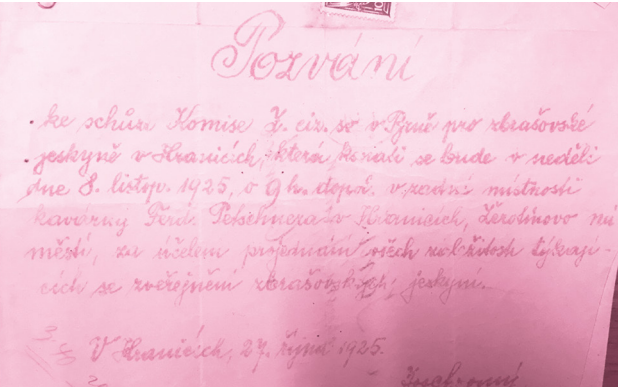 Pozvání
ke schůzi Komise Z. ciz. sv. v Brně pro zbrašovské
jeskyně v Hranicích, která konati se bude v neděli
dne 8. listop. 1925, o 9 h. dopol. v zadní místnosti
kavárny Ferd. Petschnera v Hranicích, Žerotínovo ná
městí, za účelem projednání všech záležitostí týkají-
cích se zveřejnění zbrašovských jeskyní.
V Hranicích, 27. října 1925.